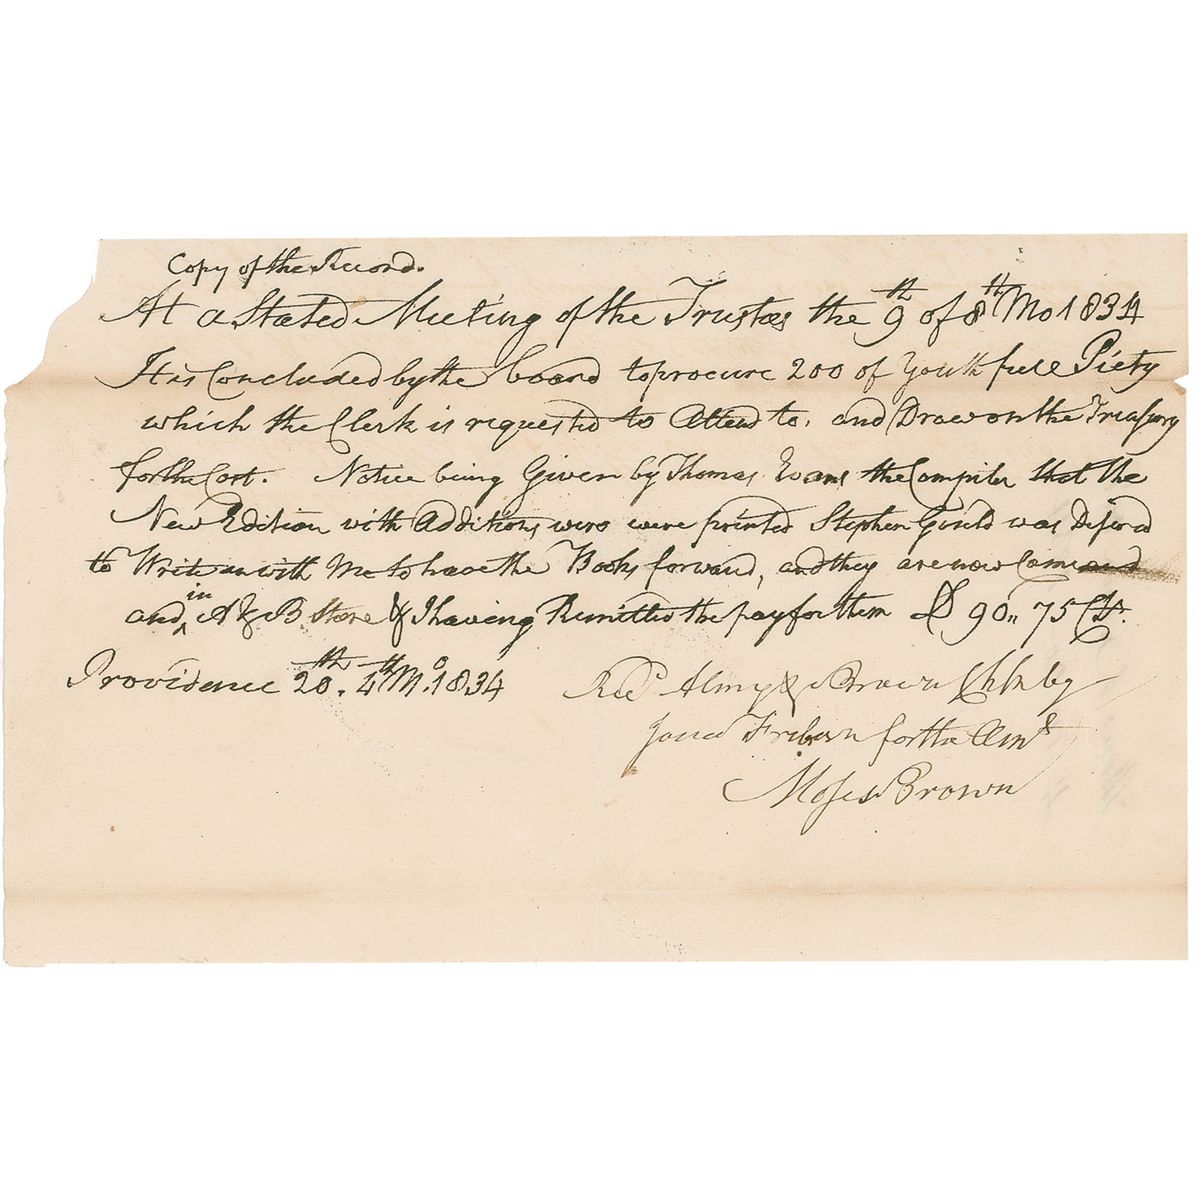 Copy of the Record.
At a Stated Meeting of the Trustees the 9th of 8th Mo 1834
It is Concluded by the board to procure 200 of Youthfull Piety
which the Clerk is requested to Attend to, and Draw on the Treasury
for the Cost. Notice being Given by Thomas Evans the Compiler that the
New Edition with Additions were were printed Stephen Gould was Desired
to Write with Me to have the Books forward, and they are now Come and
and in A & B Store & I having Remitted the pay for them $ 90,, 75 Cts.
Providence 20th 4th Mo. 1834
Recd. Almy & Brown by
for the Amt
Moses Brown